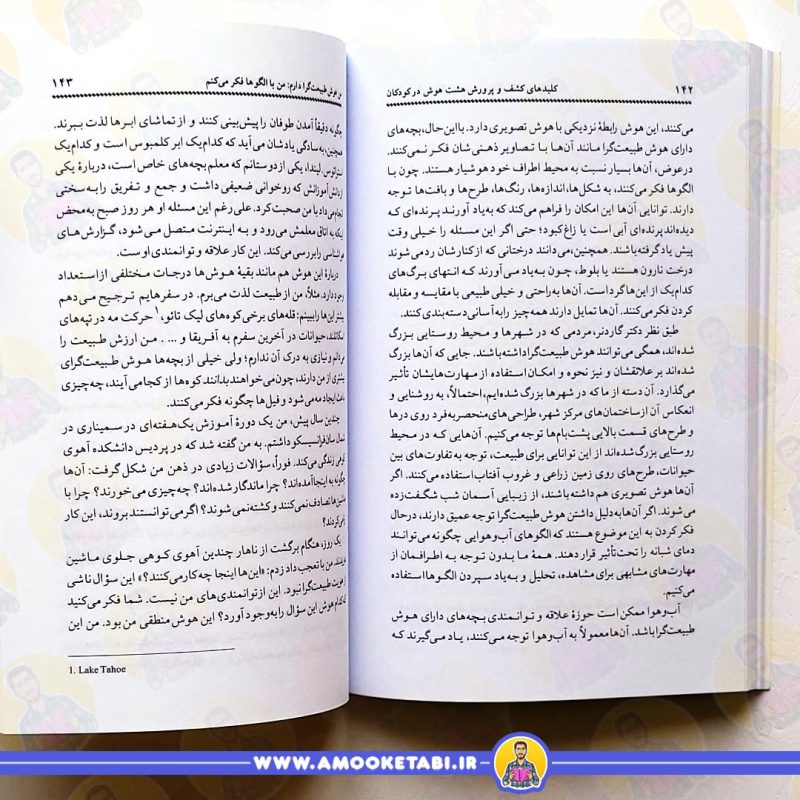 ۱۴۲
کلیدهای کشف و پرورش هشت هوش در کودکان
می‌کنند، این هوش رابطهٔ نزدیکی با هوش تصویری دارد. با این حال، بچه‌های
دارای هوش طبیعت‌گرا مانند آن‌ها با تصاویر ذهنی‌شان فکر نمی‌کنند.
درعوض، آن‌ها بسیار نسبت به محیط اطراف خود هوشیار هستند. چون با
الگوها فکر می‌کنند، به شکل‌ها، اندازه‌ها، رنگ‌ها، طرح‌ها و بافت‌ها توجه
دارند. توانایی آن‌ها این امکان را فراهم می‌کند که به‌یاد آورند پرنده‌ای که
دیده‌اند پرنده‌ای آبی است یا زاغ کبود؛ حتی اگر این مسئله را خیلی وقت
پیش یاد گرفته باشند. همچنین، می‌دانند درختانی که از کنارشان رد می‌شوند
درخت نارون هستند یا بلوط، چون به‌یاد می‌آورند که انتهای برگ‌های
کدام‌یک از این‌ها گرد است. آن‌ها به‌راحتی و خیلی طبیعی با مقایسه و مقابله
کردن فکر می‌کنند. آن‌ها تمایل دارند همه‌چیز را به‌آسانی دسته‌بندی کنند.
طبق نظر دکتر گاردنر، مردمی که در شهرها و محیط روستایی بزرگ
شده‌اند، همگی می‌توانند هوش طبیعت‌گرا داشته باشند. جایی که آن‌ها بزرگ
شده‌اند بر علائقشان و نیز نحوه و امکان استفاده از مهارت‌هایشان تأثیر
می‌گذارد. آن دسته از ما که در شهرها بزرگ شده‌ایم، احتمالاً، به روشنایی و
انعکاس آن از ساختمان‌های مرکز شهر، طراحی‌های منحصربه‌فرد روی درها
و طرح‌های قسمت بالایی پشت‌بام‌ها توجه می‌کنیم. آن‌هایی که در محیط
روستایی بزرگ شده‌اند از این توانایی برای طبیعت، توجه به تفاوت‌های بین
حیوانات، طرح‌های روی زمین زراعی و غروب آفتاب استفاده می‌کنند. اگر
آن‌ها هوش تصویری هم داشته باشند، از زیبایی آسمان شب شگفت‌زده
می‌شوند. اگر آن‌ها به‌دلیل داشتن هوش طبیعت‌گرا توجه عمیق دارند، درحال
فکر کردن به این موضوع هستند که الگوهای آب‌وهوایی چگونه می‌توانند
دمای شبانه را تحت‌تأثیر قرار دهند. همهٔ ما بدون توجه به اطرافمان از
مهارت‌های مشابهی برای مشاهده، تحلیل و به‌یاد سپردن الگوها استفاده
می‌کنیم.
آب‌وهوا ممکن است حوزهٔ علاقه و توانمندی بچه‌های دارای هوش
طبیعت‌گرا باشد. آن‌ها معمولاً به آب‌وهوا توجه می‌کنند، یاد می‌گیرند که
هوش طبیعت‌گرا دارم: من با الگوها فکر می‌کنم
۱۴۳
چگونه دقیقاً آمدن طوفان را پیش‌بینی کنند و از تماشای ابرها لذت ببرند.
همچنین، به‌سادگی یادشان می‌آید که کدام‌یک ابر کلمبوس است و کدام‌یک
استراتوس. لیندا، یکی از دوستانم که معلم بچه‌های خاص است، دربارهٔ یکی
از دانش‌آموزانش که روخوانی ضعیفی داشت و جمع و تفریق را به‌سختی
انجام می‌داد با من صحبت کرد. علی‌رغم این مسئله او هر روز صبح به‌محض
اینکه به اتاق معلمش می‌رود و به اینترنت متصل می‌شود، گزارش‌های
هواشناسی را بررسی می‌کند. این کار علاقه و توانمندی اوست.
دربارهٔ این هوش هم مانند بقیهٔ هوش‌ها درجات مختلفی از استعداد
وجود دارد. مثلاً، من از طبیعت لذت می‌برم. در سفرهایم ترجیح می‌دهم
بیشتر این‌ها را ببینم: قله‌های برخی کوه‌های لیک تائو،۱ حرکت مه در تپه‌های
اسکاتلند، حیوانات در آخرین سفرم به آفریقا و ... . من ارزش طبیعت را
می‌دانم و نیازی به درک آن ندارم؛ ولی خیلی از بچه‌ها هوش طبیعت‌گرای
بیشتری از من دارند، چون می‌خواهند بدانند کوه‌ها از کجا می‌آیند، چه‌چیزی
باعث ایجاد مه می‌شود و فیل‌ها چگونه فکر می‌کنند.
چندین سال پیش، من یک دورهٔ آموزش یک‌هفته‌ای در سمیناری در
شمال سان‌فرانسیسکو داشتم. به من گفته شد که در پردیس دانشکده آهوی
کوهی زندگی می‌کند. فوراً، سؤالات زیادی در ذهن من شکل گرفت: آن‌ها
چگونه به اینجا آمده‌اند؟ چرا ماندگار شده‌اند؟ چه‌چیزی می‌خورند؟ چرا با
ماشین‌ها تصادف نمی‌کنند و کشته نمی‌شوند؟ اگر می‌توانستند بروند، این کار
را می‌کردند؟
یک روز، هنگام برگشت از ناهار چندین آهوی کوهی جلوی ماشین
بودند. من با تعجب داد زدم: «این‌ها اینجا چه کار می‌کنند؟» این سؤال ناشی
از هویت طبیعت‌گرا نبود. این از توانمندی‌های من نیست. شما فکر می‌کنید
کدام هوش این سؤال را به‌وجود آورد؟ این هوش منطقی من بود. من این
1. Lake Tahoe
WWW.AMOOKETABI.IR